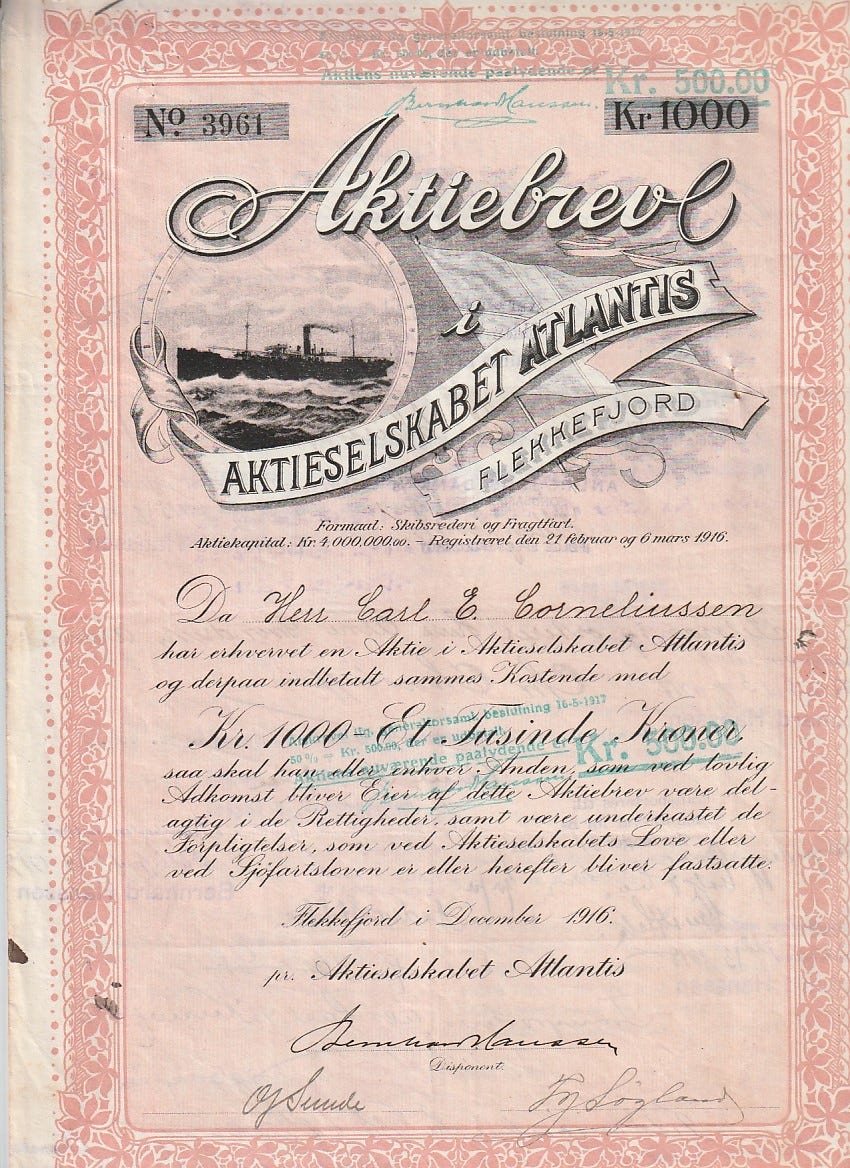 generalforsaml. beslutning 16-5-1917
Kr. 500.00, der er udbetalt
Aktiens nuværende paalydende er Kr. 500.00
Bernhard Hanssen.
No. 3961
Kr 1000
Aktiebrev
i
AKTIESELSKABET ATLANTIS
FLEKKEFJORD
Formaal: Skibsrederi og Fragtfart.
Aktiekapital: Kr. 4,000,000.00. – Registreret den 21 februar og 6 mars 1916.
Da Herr Carl E. Corneliussen
har erhvervet en Aktie i Aktieselskabet Atlantis
og derpaa indbetalt sammes Kostende med
generalforsaml. beslutning 16-5-1917
Kr. 1000 – Et Tusinde Kroner,
50 % = Kr. 500.00, der er udbetalt
Aktiens nuværende paalydende er Kr. 500.00
saa skal han eller enhver Anden, som ved lovlig
Adkomst bliver Eier af dette Aktiebrev være del-
agtig i de Rettigheder, samt være underkastet de
Forpligtelser, som ved Aktieselskabets Love eller
ved Sjöfartsloven er eller herefter bliver fastsatte.
Flekkefjord i December 1916.
pr. Aktieselskabet Atlantis
Bernhard Hanssen
Disponent.
OJ Sunde